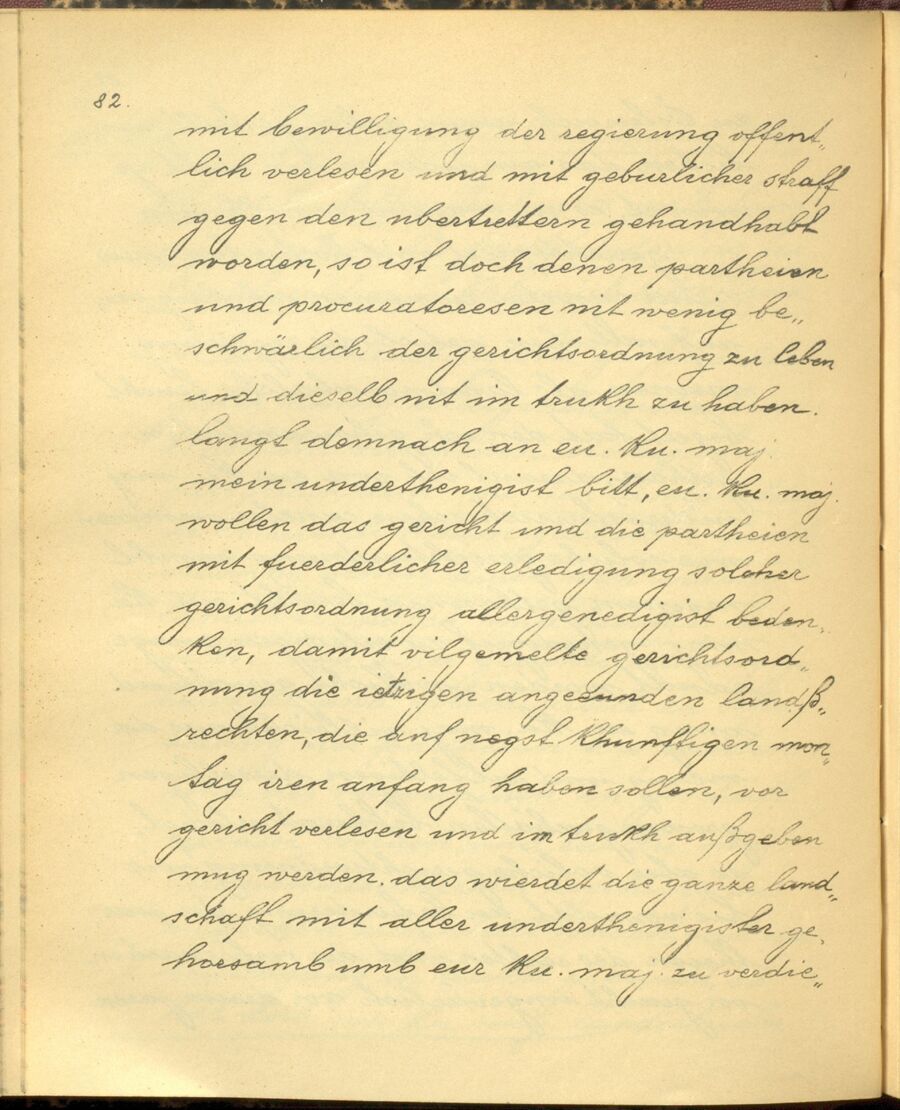 82.
mit bewilligung der regierung offent„
lich verlesen und mit geburlicher straff
gegen den ubertrettern gehandhabt
worden, so ist doch denen partheien
und procuratoresen nit wenig be„
schwärlich der gerichtsordnung zu leben
und dieselb nit im trukh zu haben.
langt demnach an eu. Ku. maj.
mein underthenigist bitt, eu. Ku. maj.
wollen das gericht und die partheien
mit fuerderlicher erledigung solcher
gerichtsordnung allergenedigist beden„
ken, damit vilgemelte gerichtsord„
nung die ietzigen angesunden landß„
rechten, die auf negst khunfftigen mon„
tag iren anfang haben sollen, vor
gericht verlesen und im trukh außgeben
mug werden. das wierdet die ganze land„
schaft mit aller underthenigister ge„
horsamb umb eur Ku. maj. zu verdie„